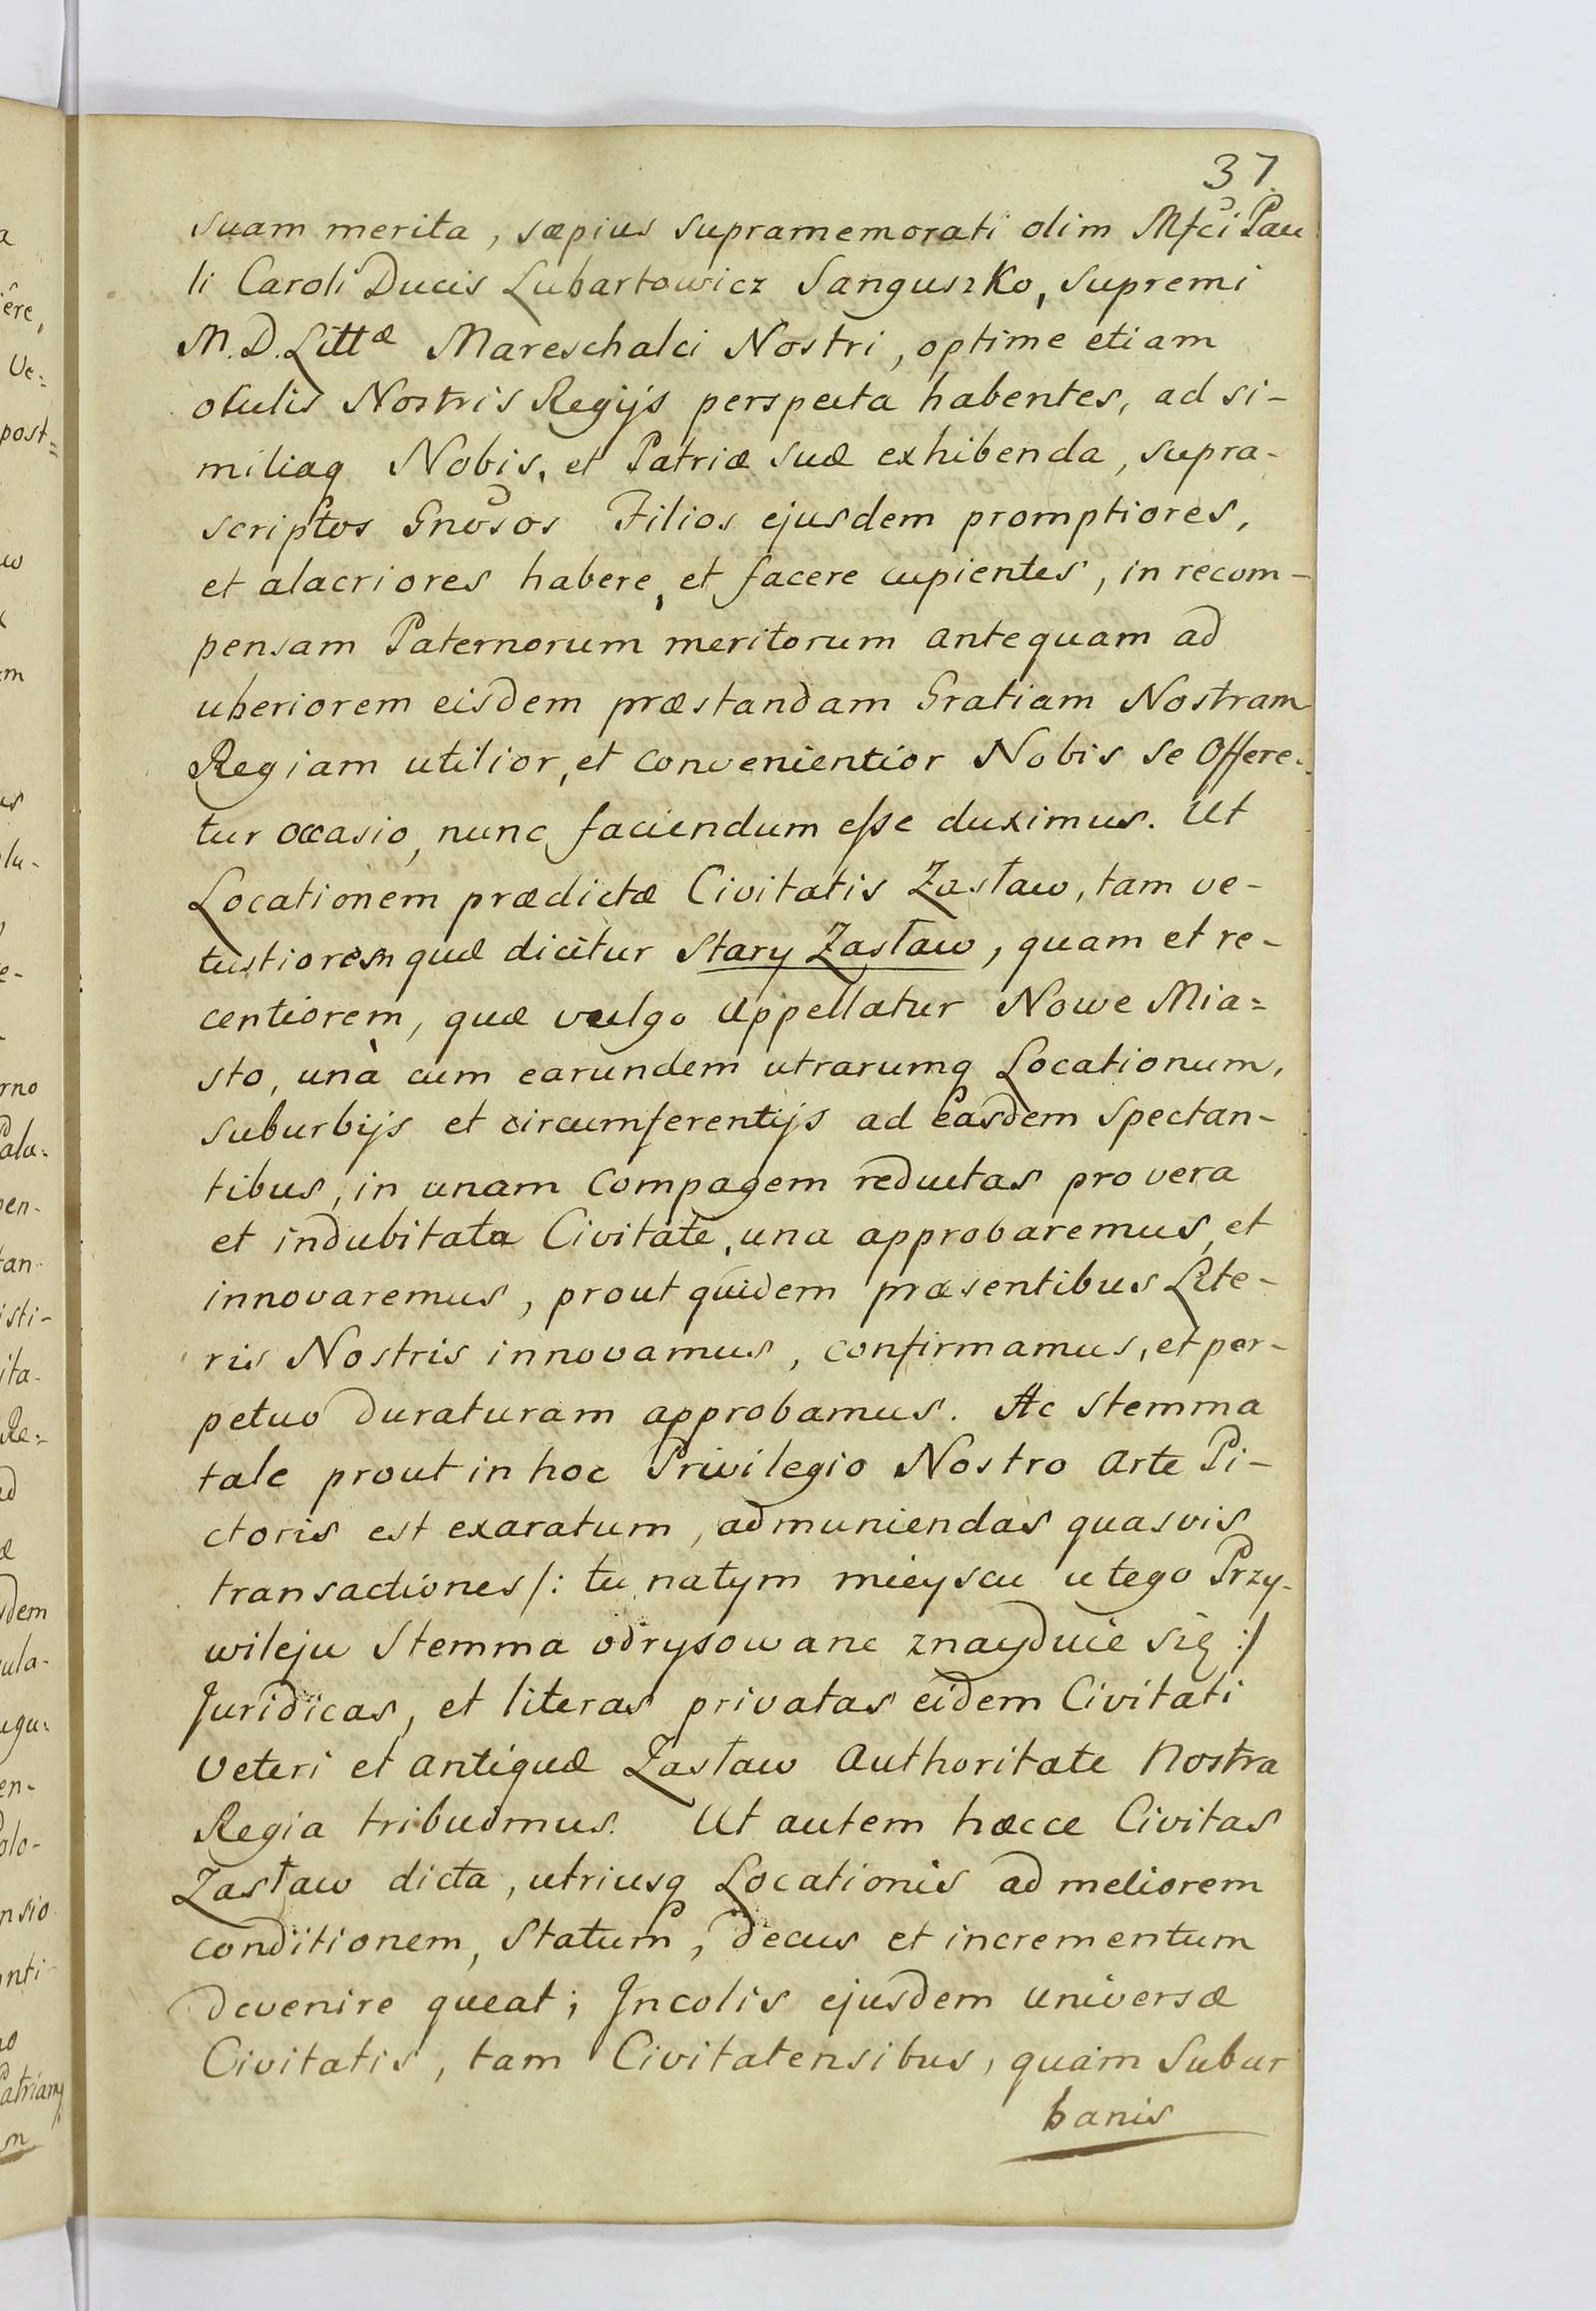 37.
suam merita, sæpius supramemorati olim Mfci Pau
li Caroli Ducis Lubartowicz Sanguszko, Supremi
M.D. Littæ Mareschalci Nostri, optime etiam
oculis Nostris Regijs perspecta habentes, ad si-
miliaq Nobis, et Patriæ suæ exhibenda, supra-
scriptos Gnosos Filios ejusdem promptiores,
et alacriores habere, et facere cupientes, in recom-
pensam Paternorum meritorum antequam ad
uberiorem eisdem præstandam Gratiam Nostram
Regiam utilior, et convenientior Nobis se Offere-
tur occasio, nunc faciendum esse duximus. Ut
Locationem prædictæ Civitatis Zasław, tam ve-
tustiorem quæ dicitur Stary Zasław, quam et re-
centiorem, quæ vulgo appellatur Nowe Mia=
sto, unà cum earundem utrarumq Locationum,
suburbijs et circumferentijs ad Easdem Spectan-
tibus, in unam Compagem reductas pro vera
et indubitata Civitate, una approbaremus, et
innovaremus, prout quidem præsentibus Lite-
ris Nostris innovamus, confirmamus, et per-
petuo duraturam approbamus. Ac Stemma
tale prout in hoc Privilegio Nostro Arte Pi-
ctoris est exaratum, ad muniendas quasvis
transactiones /: tu na tym mieyscu u tego Przy-
wileju Stemma odrysowane znayduie się :/
Juridicas, et literas privatas eidem Civitati
Veteri et antiquæ Zasław Authoritate Nostra
Regia tribuimus. Ut autem hæcce Civitas
Zasław dicta, utriusq Locationis ad meliorem
conditionem, Statum, decus et incrementum
devenire queat; Incolis ejusdem universæ
Civitatis, tam Civitatensibus, quam Subur
banis